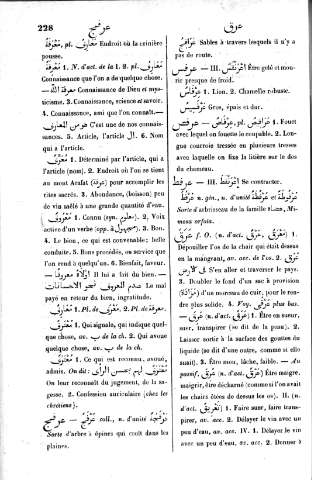 228
عرفج
عرق
مَعْرَفَةٌ, pl. مَعَارِفُ Endroit où la crinière
pousse.
مَعْرِفَةٌ 1. N. d'act. de la 1. 2. pl. مَعَارِفُ
Connaissance que l'on a de quelque chose.
معرفة الله — Connaissance de Dieu et mys-
ticisme. 3. Connaissance, science et savoir.
4. Connaissance, ami que l'on connaît. —
هو من المعارف C'est une de nos connais-
sances. 5. Article, l'article ال. 6. Nom
qui a l'article.
مُعَرَّفٌ 1. Déterminé par l'article, qui a
l'article (nom). 2. Endroit où l'on se tient
au mont Arafat (عرفة) pour accomplir les
rites sacrés. 3. Abondance, (boisson) peu
de vin mêlé à une grande quantité d'eau.
مَعْرُوفٌ 1. Connu (syn. معلوم). 2. Voix
active d'un verbe (opp. à مجهول). 3. Bon.
4. Le bien, ce qui est convenable; belle
conduite. 5. Bons procédés, ou service que
l'on rend à quelqu'un. 6. Bienfait, faveur.
— اولاه معروفا Il lui a fait du bien. —
Le mal
payé en retour du bien, ingratitude.
مَعَارِفُ 1. Pl. de معرف. 2. Pl. de معرفة.
مُعْتَرِفٌ 1. Qui signale, qui indique quel-
que chose, av. ب de la ch. 2. Qui avoue
quelque chose, av. ب de la ch.
مُعْتَرَفٌ 1. Ce qui est reconnu, avoué,
admis. On dit:
On leur reconnaît du jugement, de la sa-
gesse. 2. Confession auriculaire (chez les
chrétiens).
عَرْفَجٌ — عرفج coll., n. d'unité عَرْفَجَةٌ
Sorte d'arbre à épines qui croît dans les
plaines.
عَرَافِجُ Sables à travers lesquels il n'y a
pas de route.
عرفس — III. Être gelé et mou-
rir presque de froid.
عِرْفَاسٌ 1. Lion. 2. Chamelle robuste.
Gros, épais et dur.
عرفص — عِرْفَاصٌ, pl. عَرَافِيصُ 1. Fouet
avec lequel on fouette le coupable. 2. Lon-
gue courroie tressée en plusieurs tresses
avec laquelle on fixe la litière sur le dos
du chameau.
عرفط — III. اِعْرَنْفَطَ Se contracter.
عُرْفُطٌ n. gén., n. d'unité عُرْفُطَةٌ
Sorte d'arbrisseau de la famille طلح, Mi-
mosa orfota.
عَرَقَ f. O. (n. d'act. عَرْقٌ, مَعْرَقٌ) 1.
Dépouiller l'os de la chair qui était dessus
en la mangeant, av. acc. de l'os. 2.
في الارض S'en aller et traverser le pays.
3. Doubler le fond d'un sac à provision
(مزادة) d'un morceau de cuir, pour le ren-
dre plus solide. 4. Voy. عِرَاقٌ plus bas.
— عَرِقَ (n. d'act. عَرَقٌ) 1. Être en sueur,
suer, transpirer (se dit de la peau). 2.
Laisser sortir à la surface des gouttes du
liquide (se dit d'une outre, comme si elle
suait). 3. Être mou, lâche, faible. — Au
passif, عُرِقَ (n. d'act. عَرْقٌ) Être maigre,
maigrir, être décharné (comme si l'on avait
les chairs ôtées de dessus les os). II. (n.
d'act. تَعْرِيقٌ) 1. Faire suer, faire trans-
pirer, av. acc. 2. Délayer le vin avec un
peu d'eau, av. acc. IV. 1. Délayer le vin
avec un peu d'eau, av. acc. 2. Donner à